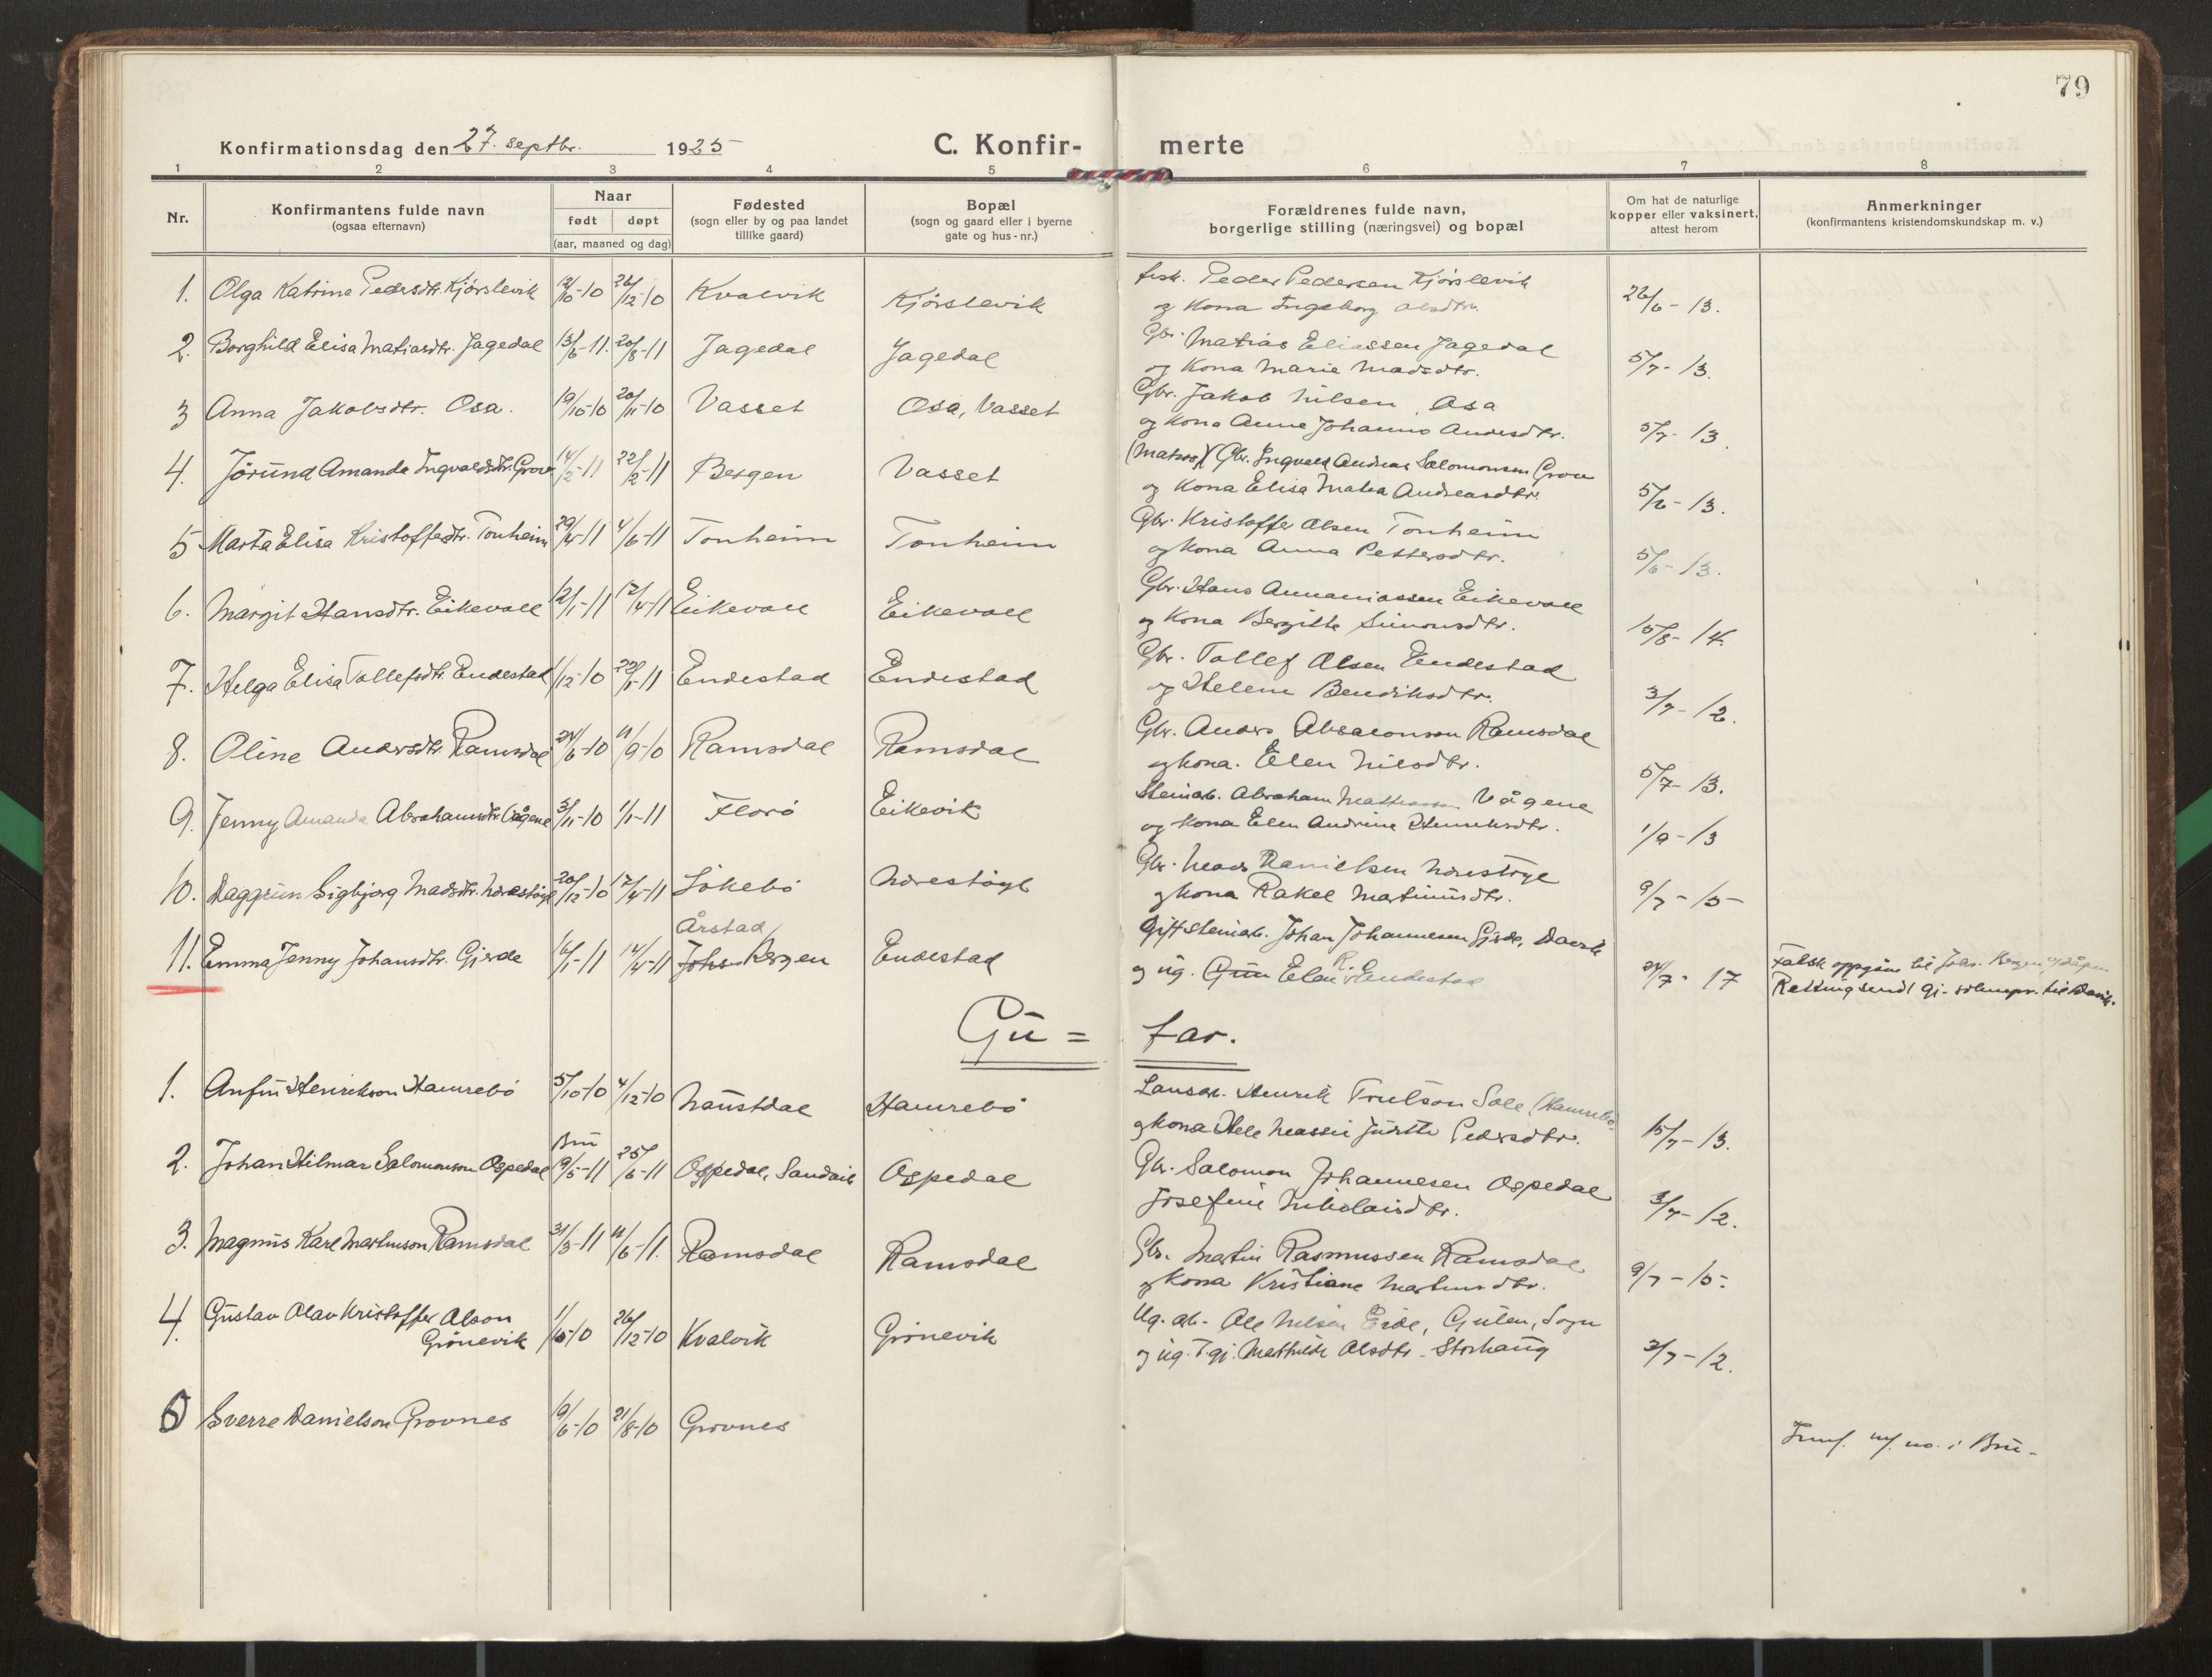 79
Konfirmationsdag den 27. septbr. 1925
C. Konfir- merte
1 2 3 4 5 6 7 8
Nr.
Konfirmantens fulde navn
(ogsaa efternavn)
Naar
født døpt
(aar, maaned og dag)
Fødested
(sogn eller by og paa landet
tillike gaard)
Bopæl
(sogn og gaard eller i byerne
gate og hus-nr.)
Forældrenes fulde navn,
borgerlige stilling (næringsvei) og bopæl
Om hat de naturlige
kopper eller vaksinert,
attest herom
Anmerkninger
(konfirmantens kristendomskundskap m. v.)
1. Olga Katrine Pedersdtr. Kjörslevik 12/10-10 26/12-10 Kvalvik Kjörslevik
fisk. Peder Pedersen Kjörslevik
og Kona Ingeborg Olsdtr. 26/6-13.
2. Borghild Elisa Matiasdtr. Fagedal 13/6-11. 20/8-11 Fagedal Fagedal
Gbr. Matias Eliassen Fagedal
og Kona Marie Madsdtr. 5/7-13.
3 Anna Jakobsdtr. Osa. 19/10-10 20/11-10 Vasset Osa, Vasset
Gbr. Jakob Nilsen Osa
og Kona Anne Johanna Andersdtr. 5/7-13.
4. Jörund Amanda Ingvaldsdtr. Grov 14/2-11 22/2-11 Bergen Vasset
(Matros) Gbr. Ingvald Andreas Salomonsen Grov
og Kona Elisa Matea Andreasdtr. 5/6-13.
5 Marta Elisa Kristoffedtr. Tonheim 29/4-11 4/6-11 Tonheim Tonheim
Gbr. Kristoffer Olsen Tonheim
og Kona Anna Pettersdtr. 5/6-13.
6. Margit Hansdtr. Eikevoll 12/1-11 17/4-11 Eikevoll Eikevoll
Gbr. Hans Annaniassen Eikevoll
og Kona Bergitte Simonsdtr. 15/8-14.
7. Helga Elisa Tollefsdtr. Endestad 1/12-10 22/1-11 Endestad Endestad
Gbr. Tollef Olsen Endestad
og Helene Bendiksdtr. 3/7-12.
8. Oline Andersdtr. Ramsdal 24/6-10 11/9-10 Ramsdal Ramsdal
Gbr. Anders Absalonson Ramsdal
og kona. Elen Nilsdtr. 5/7-13.
9. Jenny Amanda Abrahamsdtr. Vågene 3/11-10 1/1-11 Florö Eikevik
Steinarb. Abraham Matheassen Vågene
og Kona Elen Andrine Henriksdtr. 1/9-13
10. Daggrun Sigbjörg Madsdtr. Nörestöyl 20/12-10 17/4-11 Lökebö Nörestöyl
Gbr. Mads Danielsen Nörestöyl
og kona Rakel Martinusdtr. 9/7-15
11. Emma Jenny Johansdtr. Gjerde 16/1-11 14/4-11 Årstad, Bergen Endestad
Gift steinarb. Johan Johannesen Gjerde, Davik
og ug. Elen R. Endestad 24/7-17
Falsk oppgåve til
Retting sendt
Gu = tar.
1. Anfin Henrikson Hamrebö 5/10-10 4/12-10 Naustdal Hamrebö
Lausarb. Henrik Trulson Sole (Hamrebö)
og kona Pedersdtr. 15/7-13.
2. Johan Hilmar Salomonson Ospedal Bru 9/5-11 25/6-11 Ospedal, Ospedal
Gbr. Salomon Johannesen Ospedal
Josefine Nikolaisdtr. 3/7-12.
3. Magnus Karl Martinson Ramsdal 31/3-11 11/6-11. Ramsdal Ramsdal
Gbr. Martin Rasmussen Ramsdal
og Kona Kristiane Martinusdtr. 9/7-15.
4. Gustav Olav Kristoffer Olson
Grönevik 26/12-10 Kvalvik Grönevik
Ug. arb. Ole Nilsen Eide, Gulen, Sogn
og ug. T.gj. Mathilde Olsdtr. Storhaug 3/7-12.
5 Sverre Danielson Grovnes 19/6-10 21/8-10 Grovnes
no. i Bru-